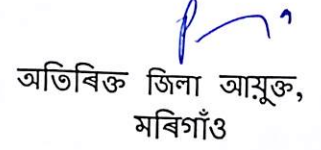 অতিৰিক্ত জিলা আয়ুক্ত,
মৰিগাঁও